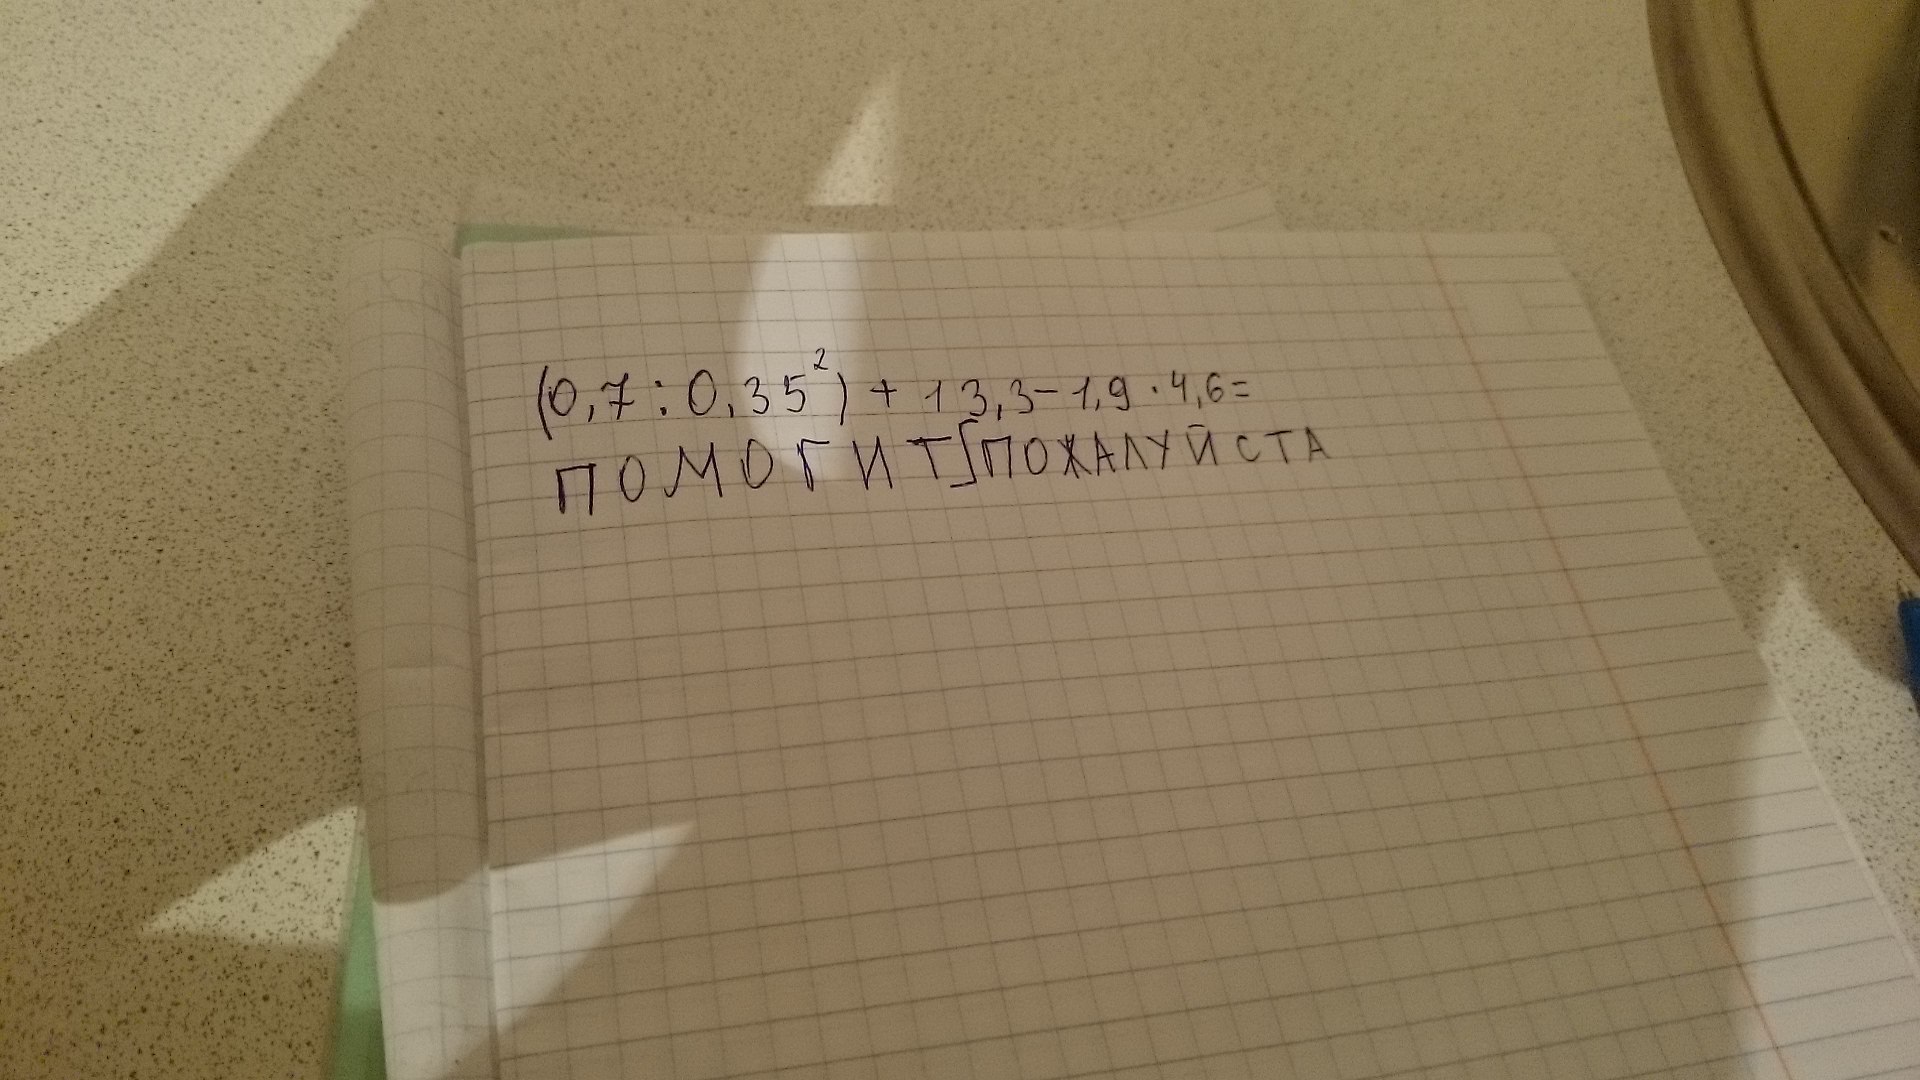 (0,7 : 0,35²) + 13,3 - 1,9 · 4,6 =
ПОМОГИТ ПОЖАЛУЙСТА